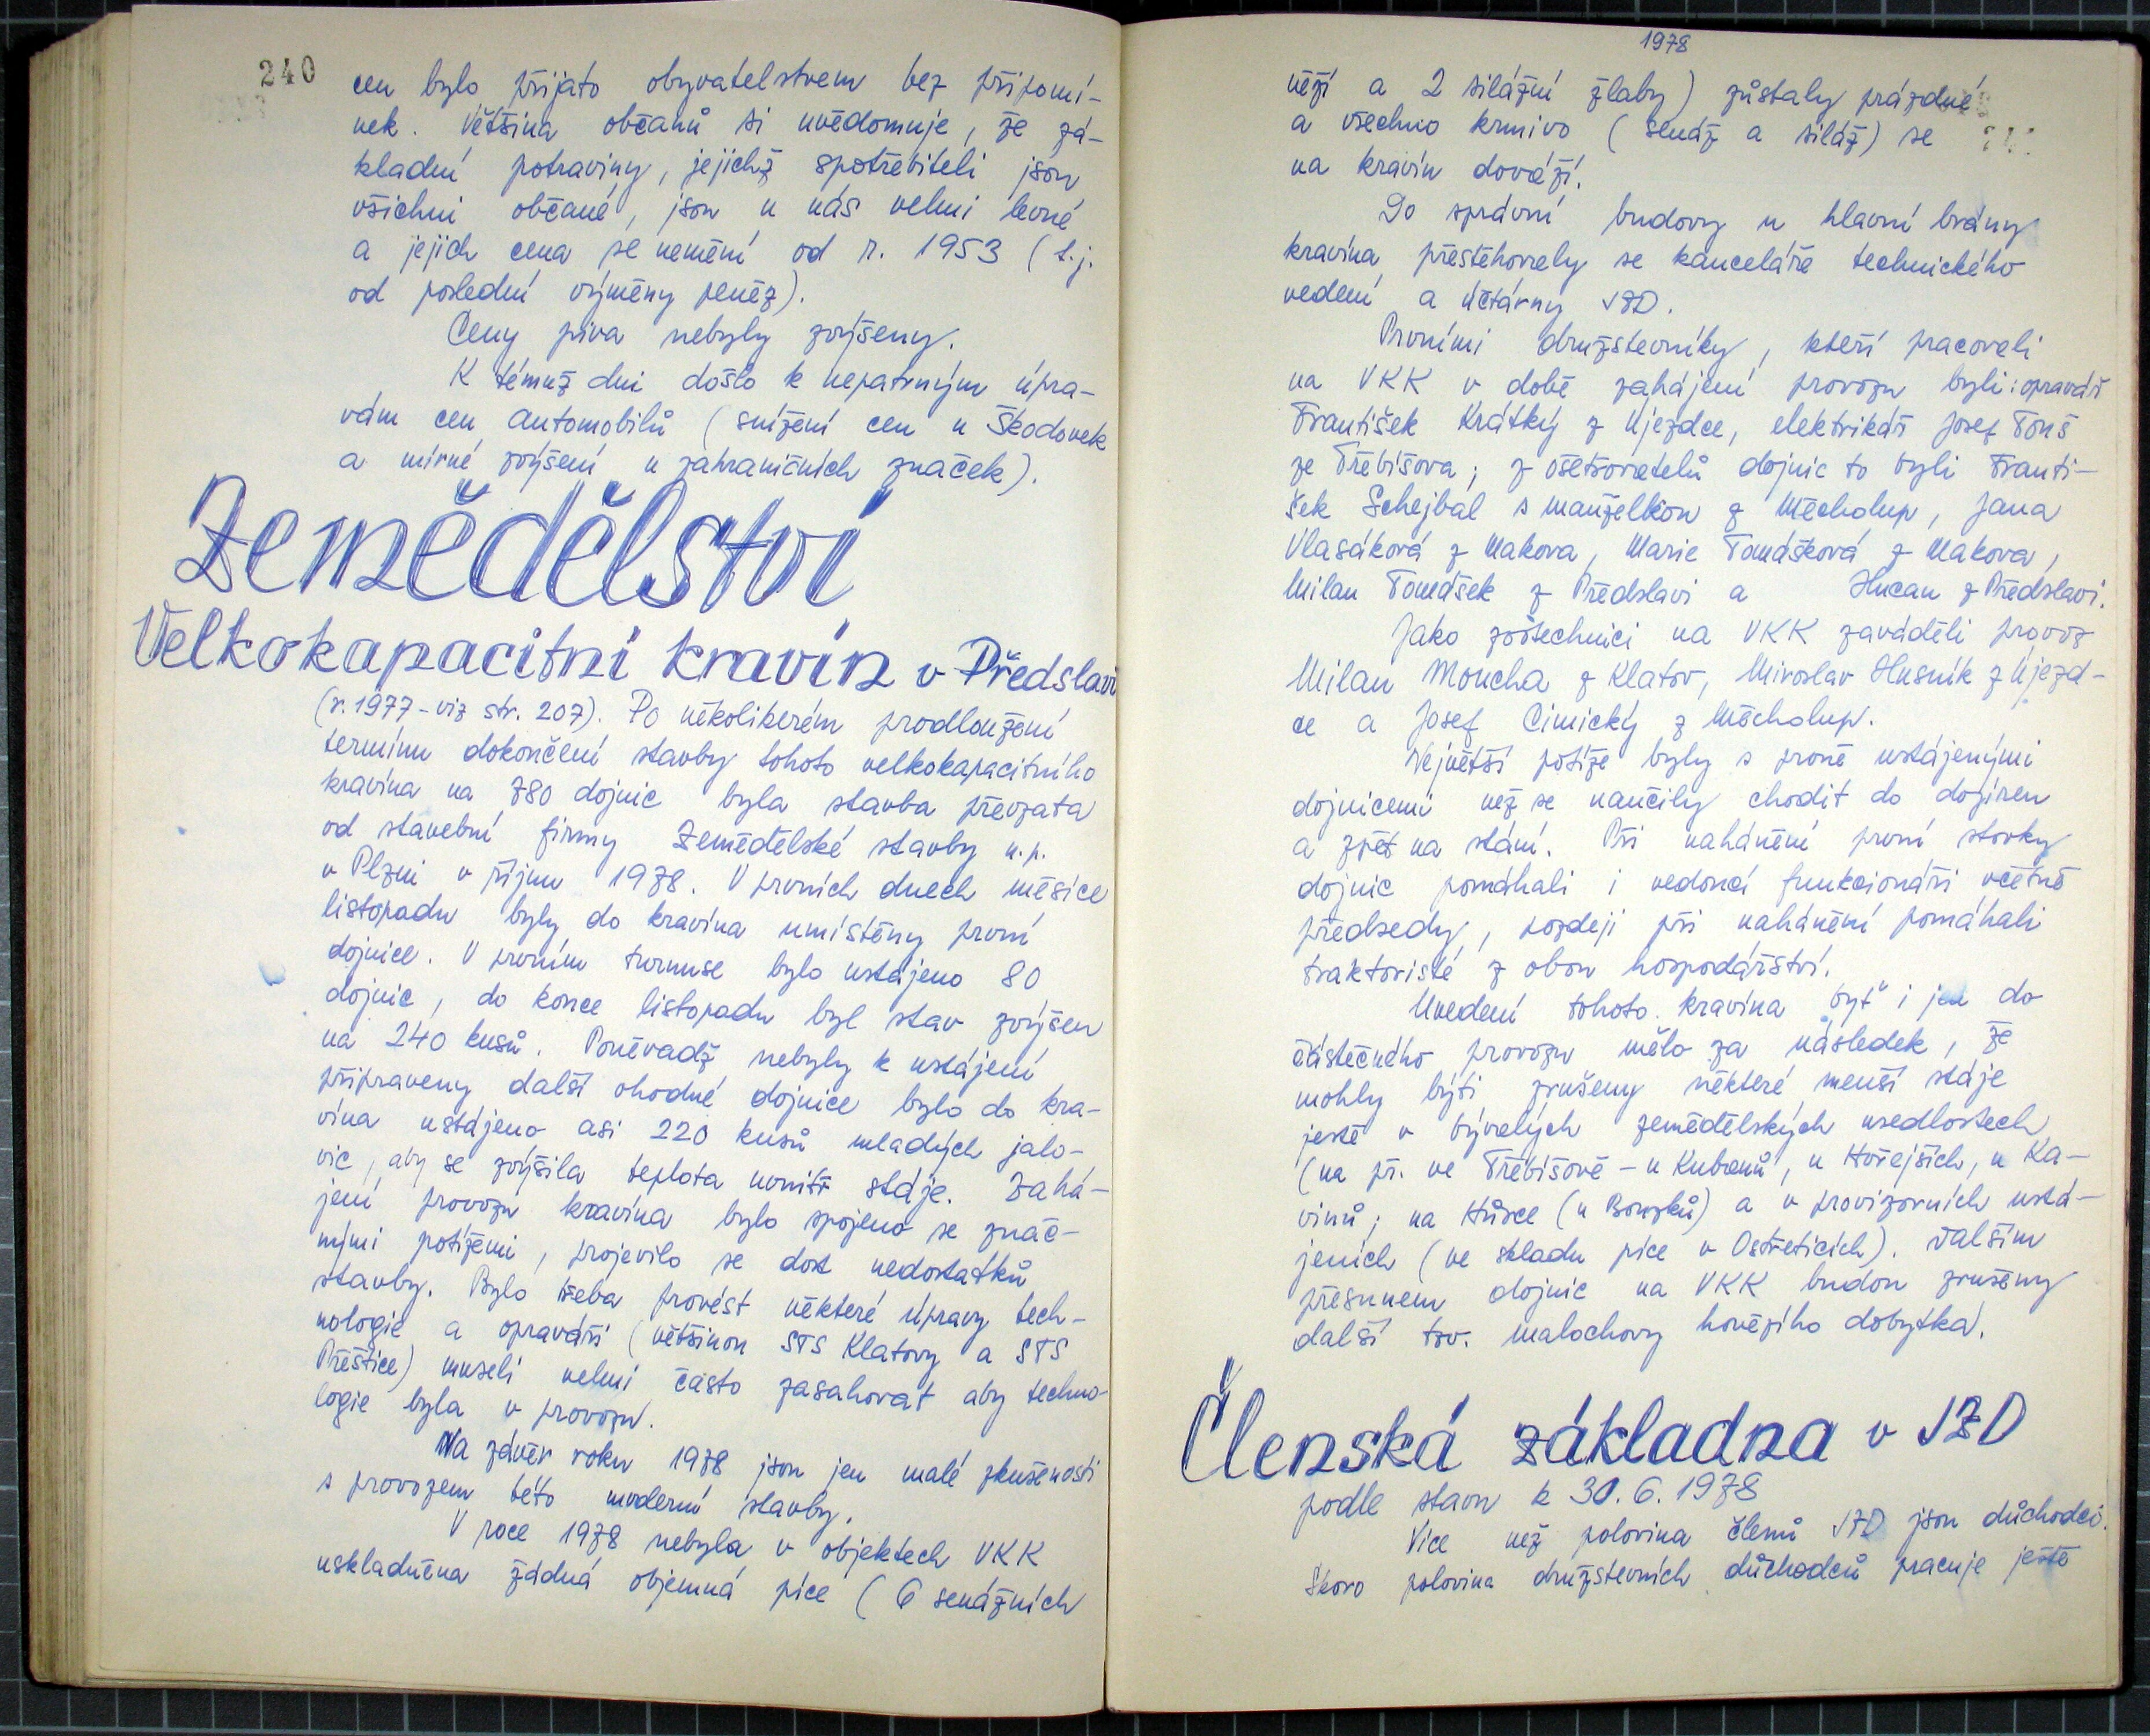 240
cen bylo přijato obyvatelstvem bez připomí-
nek. Většina občanů si uvědomuje, že zá-
kladní potraviny, jejichž spotřebiteli jsou
všichni občané, jsou u nás velmi levné
a jejich cena se nemění od r. 1953 (t.j.
od poslední výměny peněz).
Ceny piva nebyly zvýšeny.
K témuž dni došlo k nepatrným úpra-
vám cen automobilů (snížení cen u Škodovek
a mírné zvýšení u zahraničních značek).
Zemědělství
Velkokapacitní kravín v Předslavi
(r. 1977 - viz str. 207). Po několikerém prodloužení
termínu dokončení stavby tohoto velkokapacitního
kravína na 780 dojnic byla stavba převzata
od stavební firmy Zemědělské stavby n.p.
v Plzni v říjnu 1978. V prvních dnech měsíce
listopadu byly do kravína umístěny první
dojnice. V prvním turnuse bylo ustájeno 80
dojnic, do konce listopadu byl stav zvýšen
na 240 kusů. Poněvadž nebyly k ustájení
připraveny další vhodné dojnice bylo do kra-
vína ustájeno asi 220 kusů mladých jalo-
vic, aby se zvýšila teplota uvnitř stáje. Zahá-
jení provozu kravína bylo spojeno se znač-
nými potížemi, projevilo se dost nedostatků
stavby. Bylo třeba provést některé úpravy tech-
nologie a opraváři (většinou STS Klatovy a STS
Přeštice) museli velmi často zasahovat aby techno-
logie byla v provozu.
Na závěr roku 1978 jsou jen malé zkušenosti
s provozem této moderní stavby.
V roce 1978 nebyla v objektech VKK
uskladněna žádná objemná píce (6 senážních
1978
věží a 2 silážní žlaby) zůstaly prázdné
a všechno krmivo (senáž a siláž) se
na kravín dováží.
Do správní budovy u hlavní brány
kravína přestěhovaly se kanceláře technického
vedení a účtárny JZD.
Prvními družstevníky, kteří pracovali
na VKK v době zahájení provozu byli: opravář
František Krátký z Újezdce, elektrikář Josef Touš
ze Třebíšova; z ošetřovatelů dojnic to byli Franti-
šek Schejbal s manželkou z Měcholup, Jana
Vlasáková z Makova, Marie Tomášková z Makova,
Milan Tomášek z Předslavi a Hucan z Předslavi.
Jako zootechnici na VKK zaváděli provoz
Milan Moucha z Klatov, Miroslav Husník z Újezd-
ce a Josef Cimický z Měcholup.
Největší potíže byly s prvně ustájenými
dojnicemi než se naučily chodit do dojíren
a zpět na stání. Při nahánění první stovky
dojnic pomáhali i vedoucí funkcionáři včetně
předsedy, později při nahánění pomáhali
traktoristé z obou hospodářství.
Uvedení tohoto kravína byť i jen do
částečného provozu mělo za následek, že
mohly býti zrušeny některé menší stáje
ještě v bývalých zemědělských usedlostech
(na př. ve Třebíšově - u Kubanů, u Hořejších, u Ka-
vinů; na Hůrce (u Bouzků) a v provizorních ustá-
jeních (ve skladu píce v Ostřeticích). Dalším
přesunem dojnic na VKK budou zrušeny
další tzv. malochovy hovězího dobytka.
Členská základna v JZD
podle stavu k 30. 6. 1978
Více než polovina členů JZD jsou důchodci.
Skoro polovina družstevních důchodců pracuje ještě